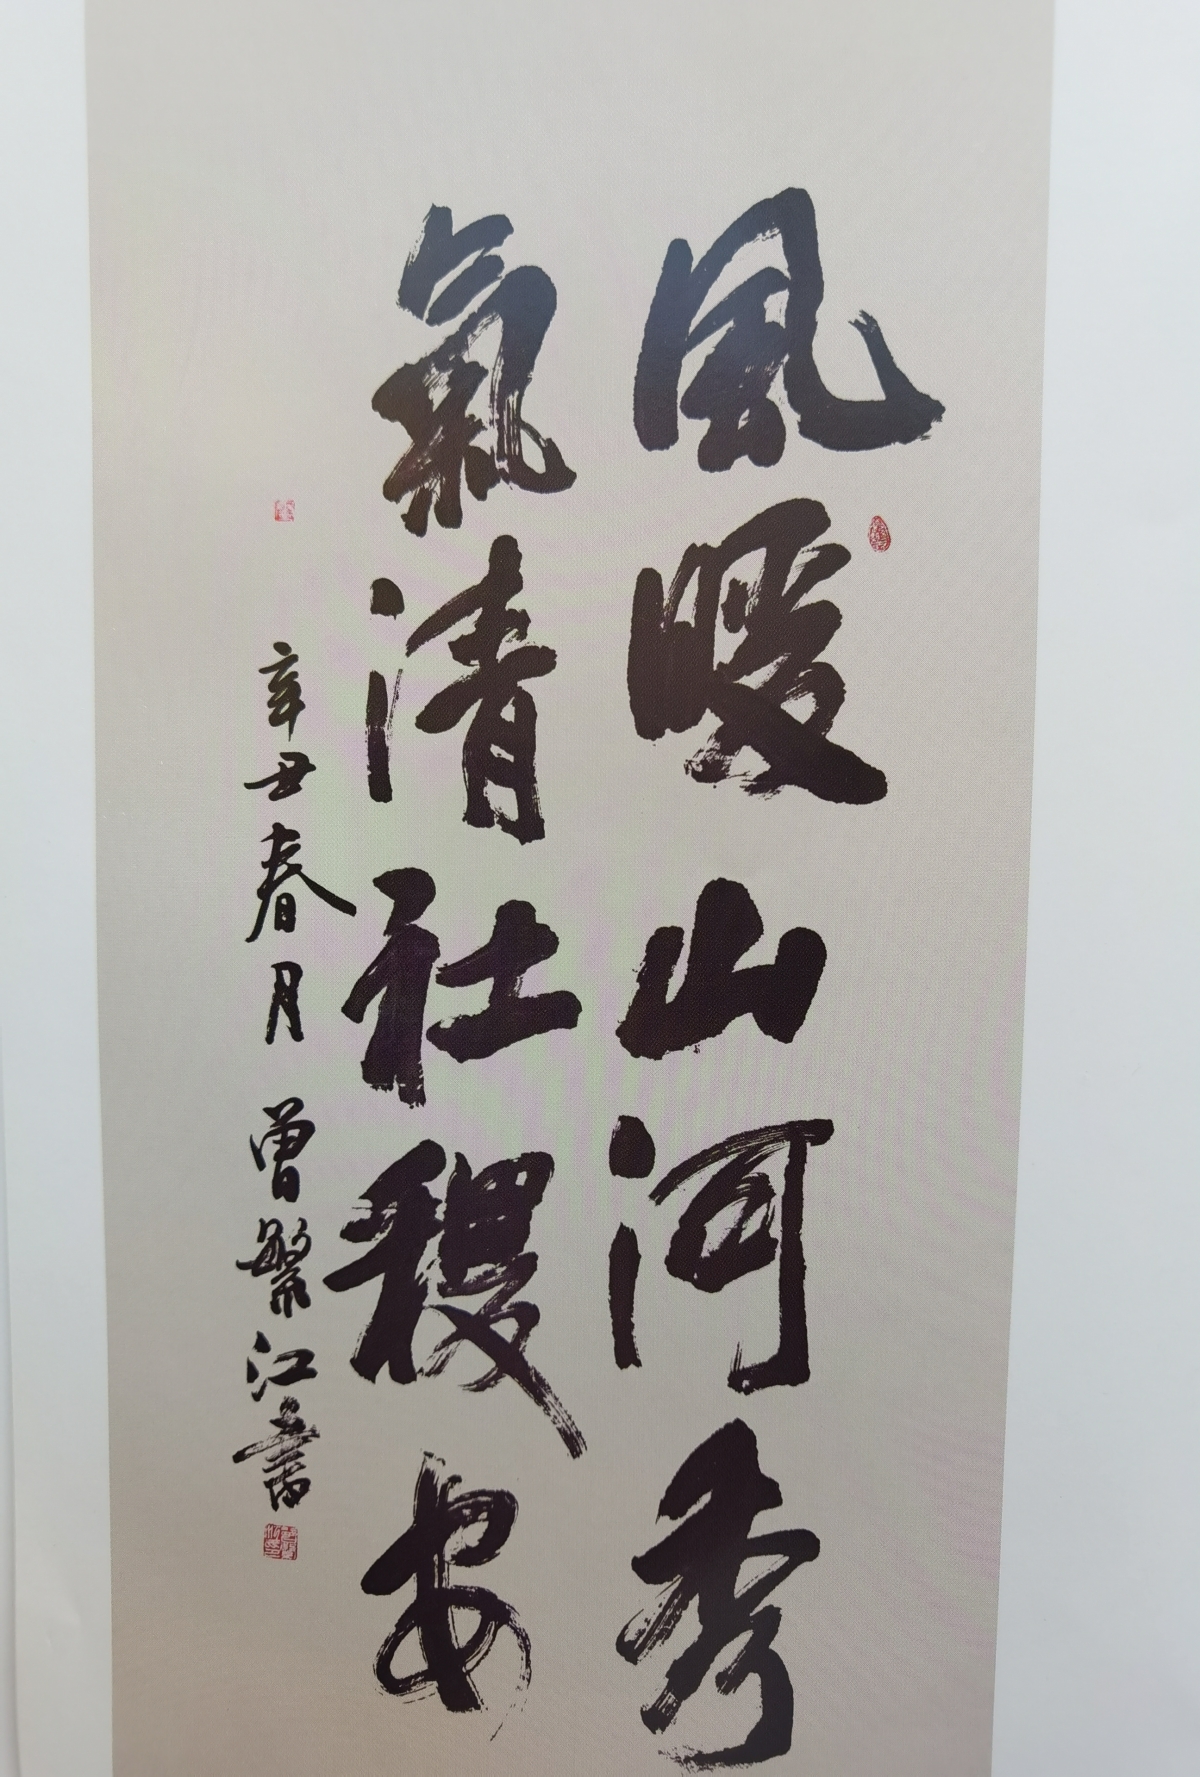 風暖山河秀
氣清社稷安
辛丑春月 曾繁江書